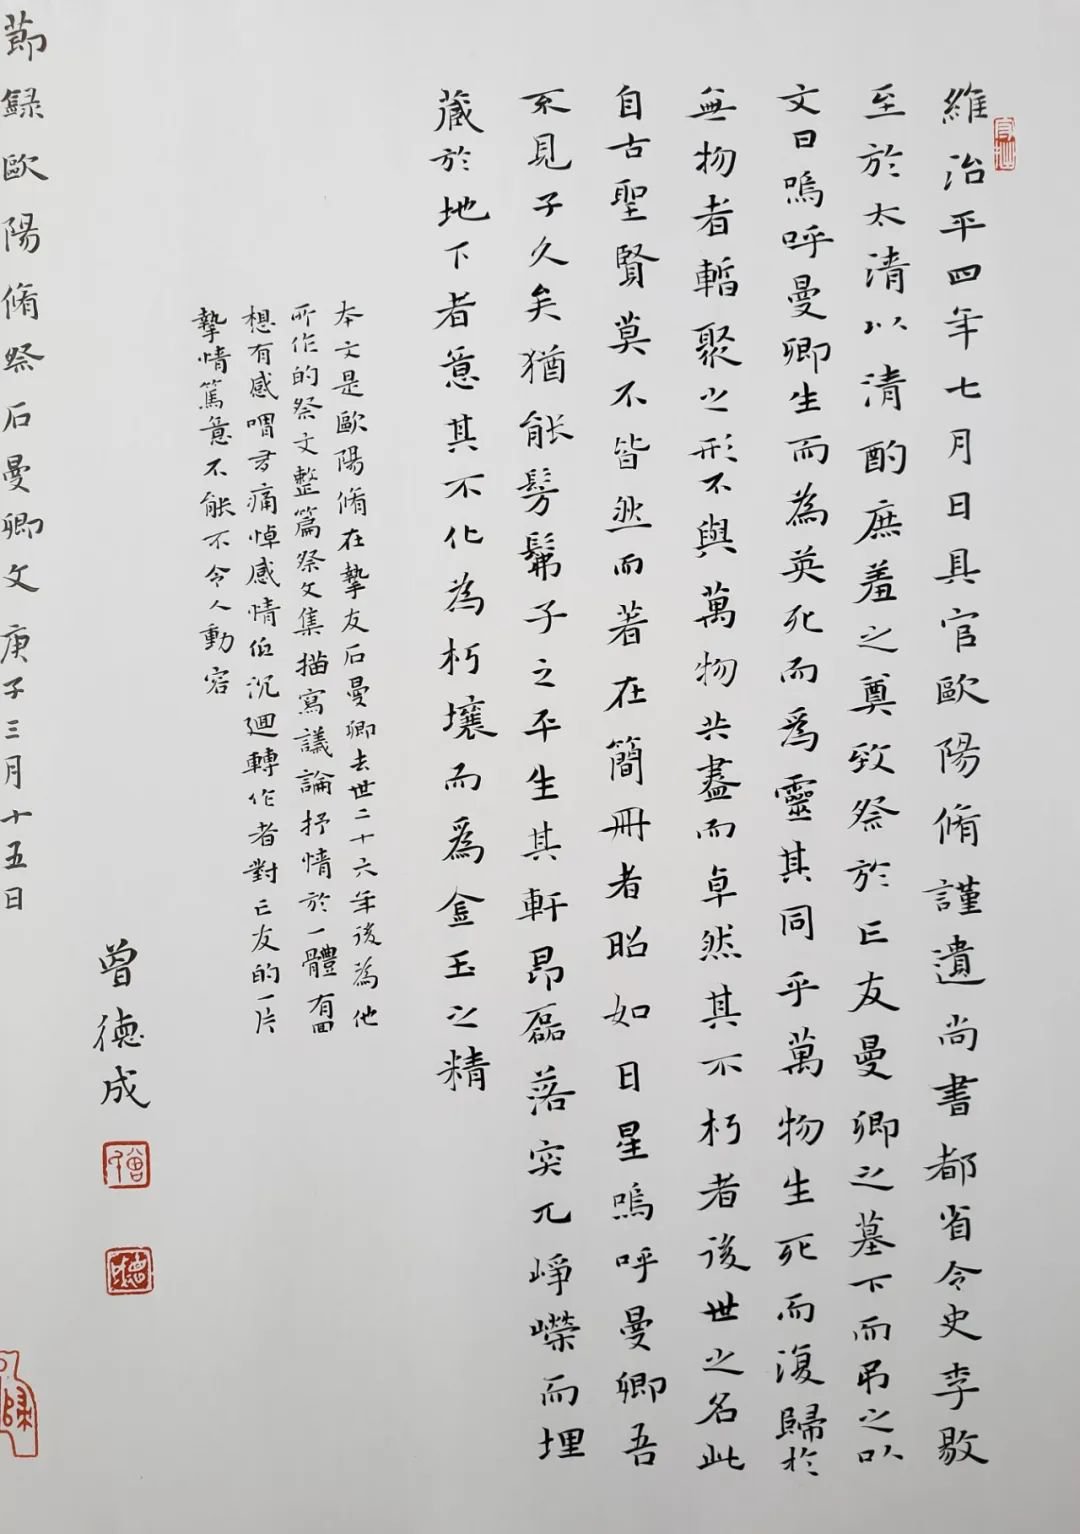 維治平四年七月日具官歐陽脩謹遺尚書都省令史李敭
至於太清以清酌庶羞之奠致祭於亡友曼卿之墓下而弔之以
文曰嗚呼曼卿生而為英死而爲靈其同乎萬物生死而復歸於
無物者暫聚之形不與萬物共盡而卓然其不朽者後世之名此
自古聖賢莫不皆然而著在簡冊者昭如日星嗚呼曼卿吾
不見子久矣猶能髣髴子之平生其軒昂磊落突兀崢嶸而埋
藏於地下者意其不化為朽壤而爲金玉之精
本文是歐陽脩在摯友石曼卿去世二十六年後為他
所作的祭文整篇祭文集描寫議論抒情於一體有回
想有感喟有痛悼感情低沉迴轉作者對亡友的一片
摯情篤意不能不令人動容
節録歐陽脩祭石曼卿文庚子三月十五日
曾德成